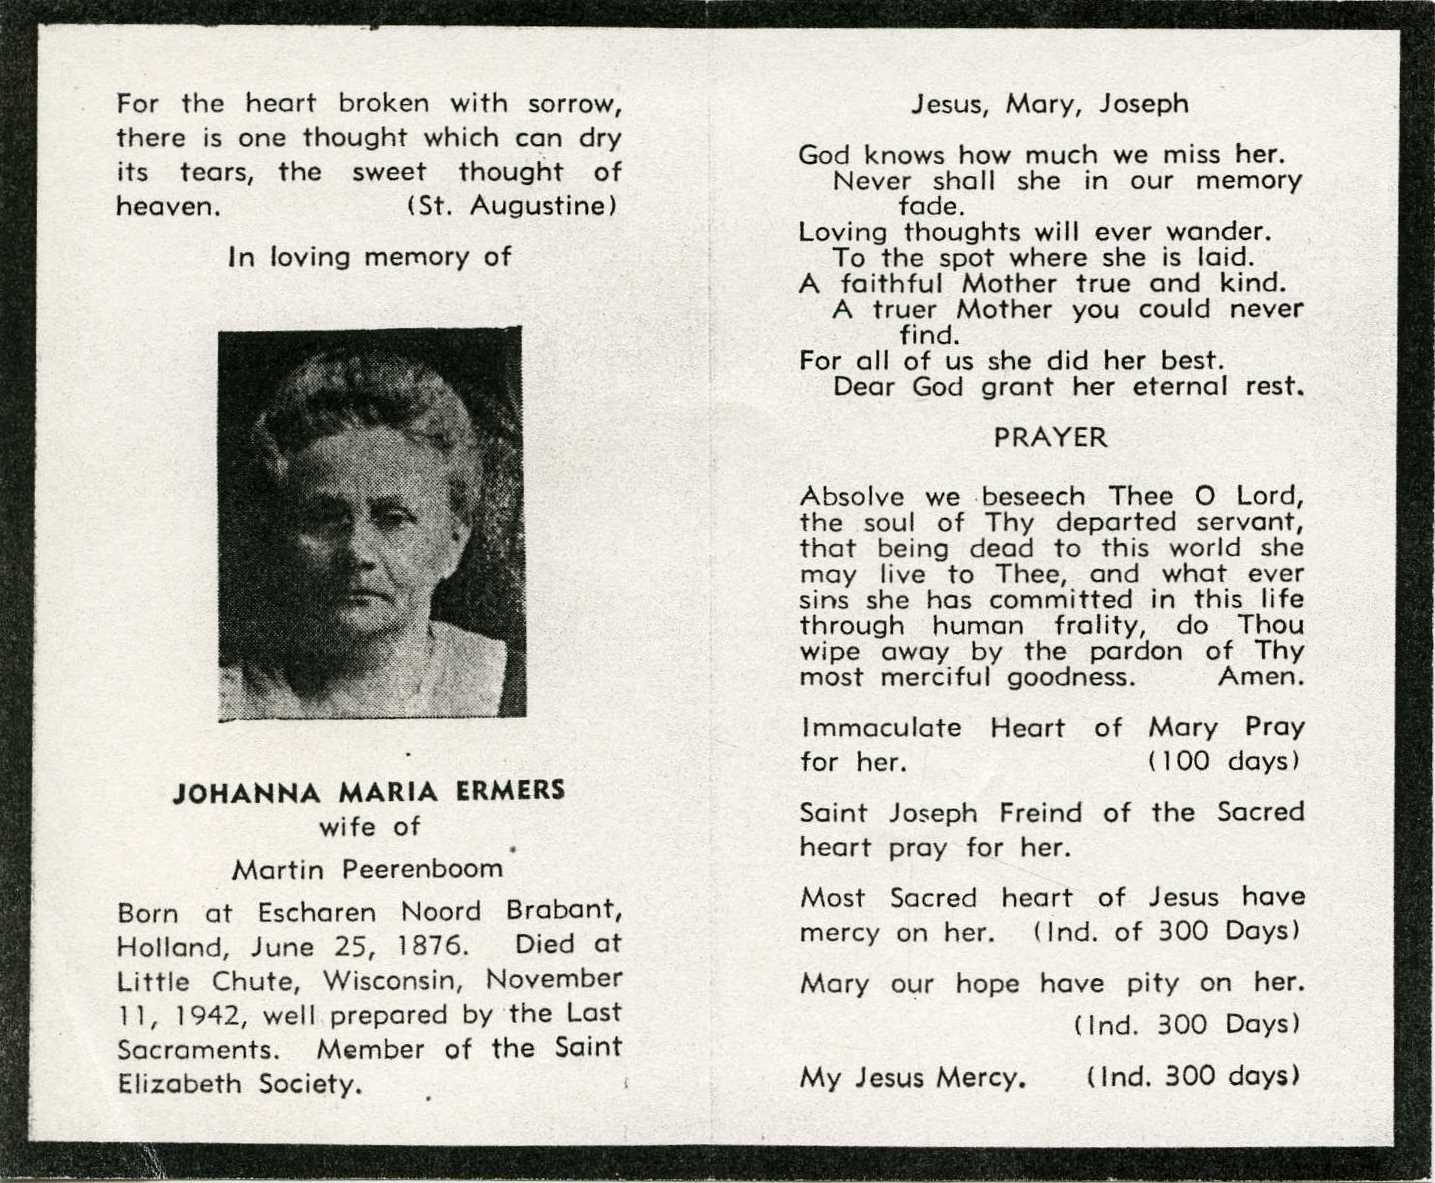 For the heart broken with sorrow,
there is one thought which can dry
its tears, the sweet thought of
heaven. (St. Augustine)
In loving memory of
JOHANNA MARIA ERMERS
wife of
Martin Peerenboom
Born at Escharen Noord Brabant,
Holland, June 25, 1876. Died at
Little Chute, Wisconsin, November
11, 1942, well prepared by the Last
Sacraments. Member of the Saint
Elizabeth Society.
Jesus, Mary, Joseph
God knows how much we miss her.
Never shall she in our memory
fade.
Loving thoughts will ever wander.
To the spot where she is laid.
A faithful Mother true and kind.
A truer Mother you could never
find.
For all of us she did her best.
Dear God grant her eternal rest.
PRAYER
Absolve we beseech Thee O Lord,
the soul of Thy departed servant,
that being dead to this world she
may live to Thee, and what ever
sins she has committed in this life
through human frality, do Thou
wipe away by the pardon of Thy
most merciful goodness. Amen.
Immaculate Heart of Mary Pray
for her. (100 days)
Saint Joseph Freind of the Sacred
heart pray for her.
Most Sacred heart of Jesus have
mercy on her. (Ind. of 300 Days)
Mary our hope have pity on her.
(Ind. 300 Days)
My Jesus Mercy. (Ind. 300 days)